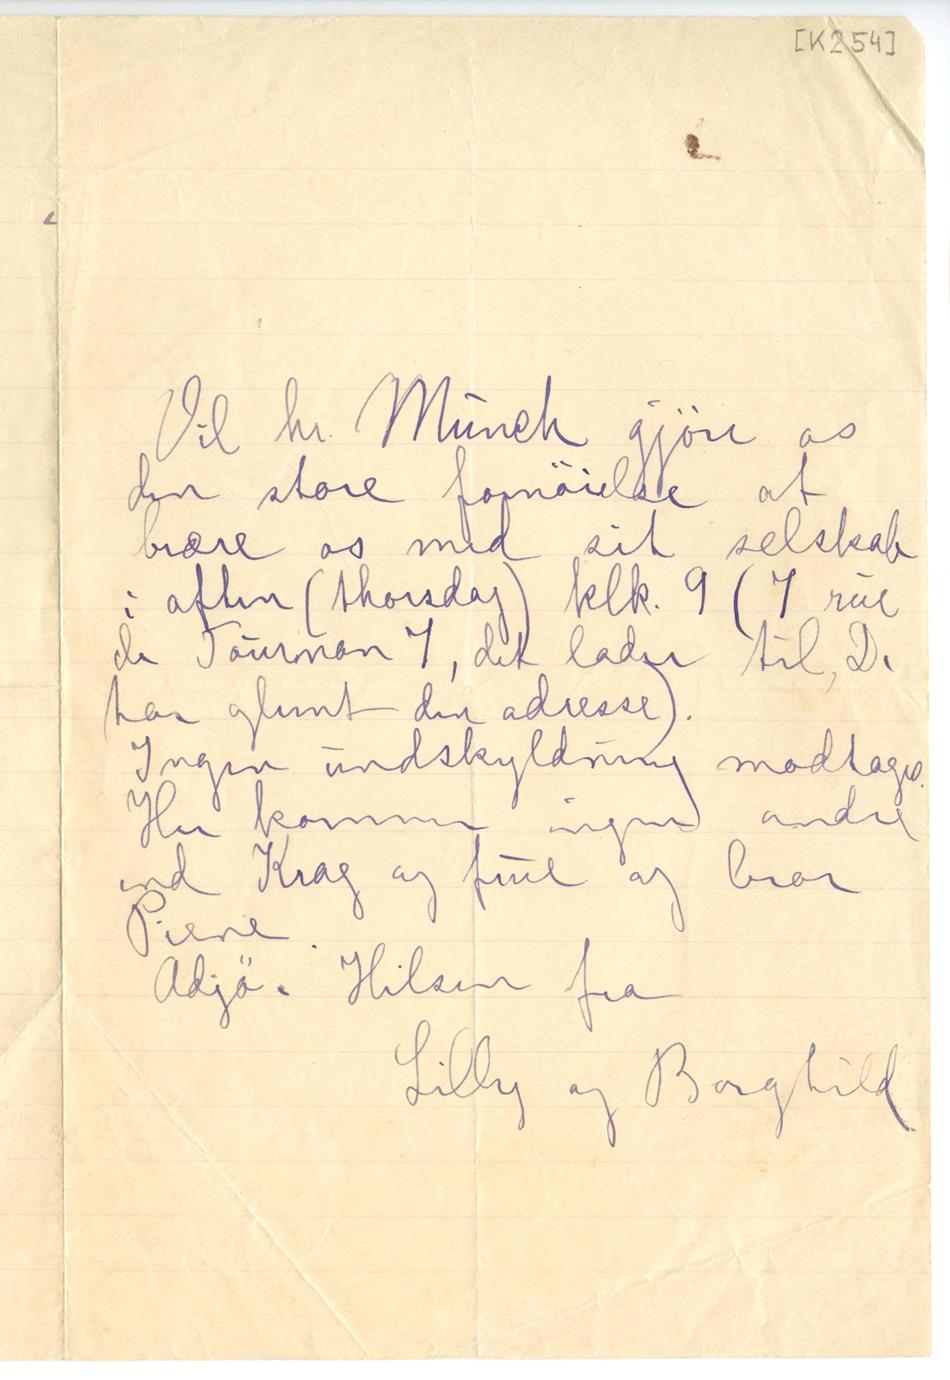 [K254]
Vil hr. Münch gjöre os
den store fornöielse at
beære os med sit selskab
i aften (thorsdag) klk. 9 (7 rüe
de Toürnon 7, det lader til, De
har glemt den adresse).
Ingen ündskyldning modtages.
Her kommer ingen andre
end Krag og früe og bror
Piene.
Adjö. Hilsen fra
Lilly og Borghild